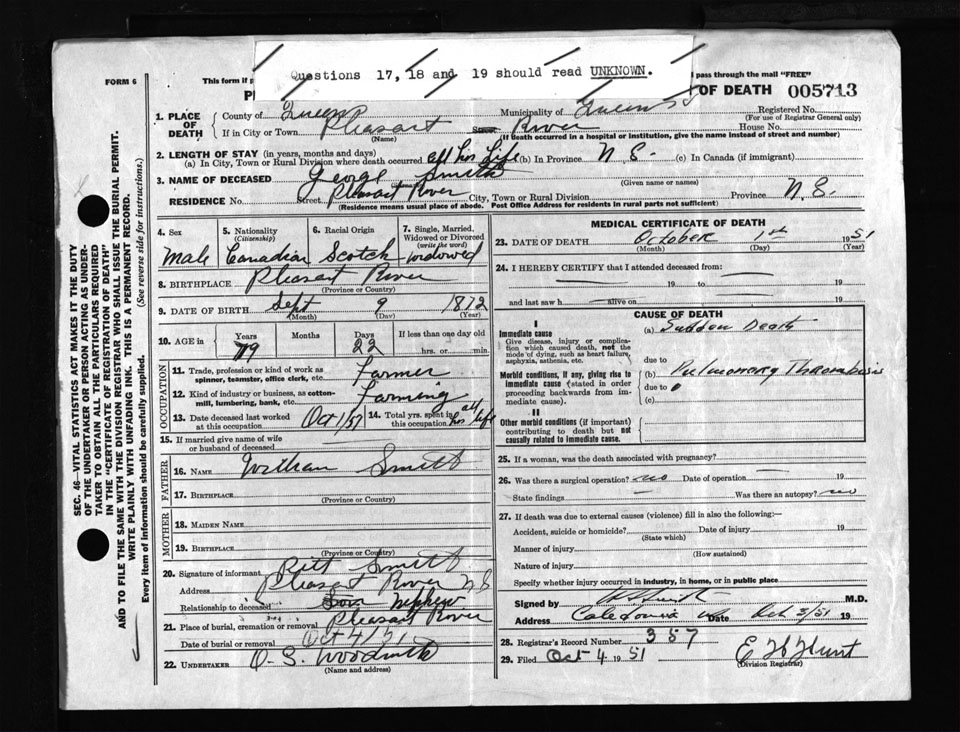 Questions 17, 18 and 19 should read UNKNOWN.
FORM 6
This form if
pass through the mail "FREE"
OF DEATH 005713
1. PLACE OF DEATH
County of Queens
Municipality of Queens
Registered No.
(For use of Registrar General only)
If in City or Town Pleasant River
Street
House No.
(Name)
(If death occurred in a hospital or institution, give the name instead of street and number)
2. LENGTH OF STAY (in years, months and days)
(a) In City, Town or Rural Division where death occurred all his life (b) In Province N.S. (c) In Canada (if immigrant)
3. NAME OF DECEASED George Smith
(Given name or names)
RESIDENCE No. Street Pleasant River City, Town or Rural Division Province N.S.
(Residence means usual place of abode. Post Office Address for residents in rural parts not sufficient)
4. Sex
Male
5. Nationality (Citizenship)
Canadian
6. Racial Origin
Scotch
7. Single, Married, Widowed or Divorced (write the word)
widowed
8. BIRTHPLACE Pleasant River
(Province or Country)
9. DATE OF BIRTH Sept 9 1872
(Month) (Day) (Year)
10. AGE in Years Months Days If less than one day old
79 22 hrs. or min.
OCCUPATION
11. Trade, profession or kind of work as spinner, teamster, office clerk, etc. Farmer
12. Kind of industry or business, as cotton-mill, lumbering, bank, etc. Farming
13. Date deceased last worked at this occupation Oct 1/51
14. Total yrs. spent in this occupation all his life
15. If married give name of wife or husband of deceased
FATHER
16. NAME William Smith
17. BIRTHPLACE
(Province or Country)
MOTHER
18. MAIDEN NAME
19. BIRTHPLACE
(Province or Country)
20. Signature of informant Pitt Smith
Address Pleasant River N.S
Relationship to deceased Son Nephew
21. Place of burial, cremation or removal Pleasant River
Date of burial or removal Oct 4/51
22. UNDERTAKER
(Name and address)
MEDICAL CERTIFICATE OF DEATH
23. DATE OF DEATH October 1st 1951
(Month) (Day) (Year)
24. I HEREBY CERTIFY that I attended deceased from:
19 to 19
and last saw h alive on 19
CAUSE OF DEATH
I
Immediate cause
Give disease, injury or complication which caused death, not the mode of dying, such as heart failure, asphyxia, asthenia, etc.
(a) Sudden Death
due to
Morbid conditions, if any, giving rise to immediate cause (stated in order proceeding backwards from immediate cause).
(b) Pulmonary Thrombosis
due to
(c)
II
Other morbid conditions (if important) contributing to death but not causally related to immediate cause.
25. If a woman, was the death associated with pregnancy?
26. Was there a surgical operation? no Date of operation 19
State findings Was there an autopsy? no
27. If death was due to external causes (violence) fill in also the following:—
Accident, suicide or homicide? Date of injury 19
(State which)
Manner of injury
(How sustained)
Nature of injury
Specify whether injury occurred in industry, in home, or in public place
Signed by M.D.
Address Caledonia Date Oct 3/51 19
28. Registrar's Record Number 357
29. Filed Oct 4 1951
(Division Registrar)
SEC. 46—VITAL STATISTICS ACT MAKES IT THE DUTY
OF THE UNDERTAKER OR PERSON ACTING AS UNDERTAKER TO OBTAIN ALL THE PARTICULARS REQUIRED
IN THE "CERTIFICATE OF REGISTRATION OF DEATH"
AND TO FILE THE SAME WITH THE DIVISION REGISTRAR WHO SHALL ISSUE THE BURIAL PERMIT.
WRITE PLAINLY WITH UNFADING INK. THIS IS A PERMANENT RECORD.
Every item of information should be carefully supplied. (See reverse side for instructions.)